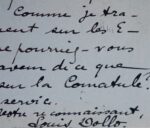 Comme je tra-
vent sur les E-
pourriez-vous
avem di ce que
sur la Comatule?
service.
Votre reconnaissant,
Louis Dollo.